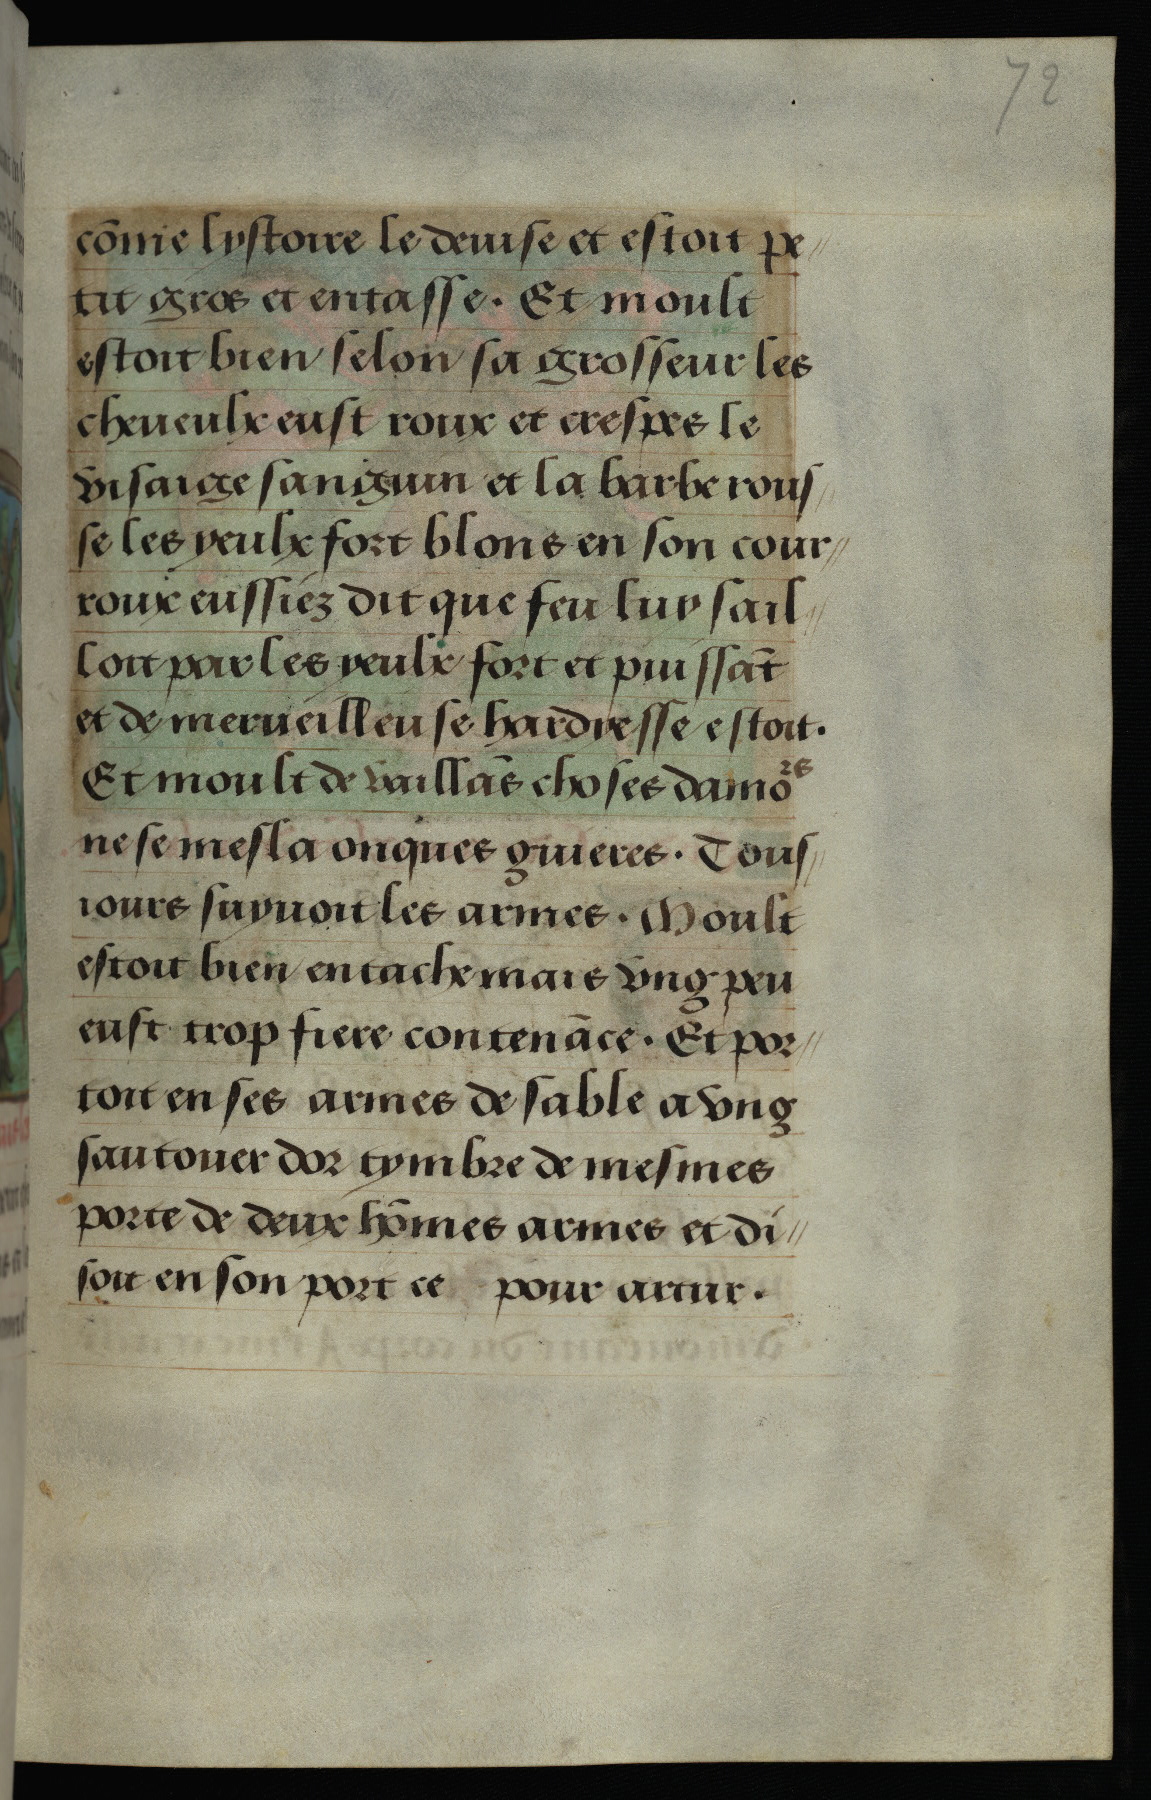 72
cōme lystoire le deuise et estoit pe//
tit gros et entasse. Et moult
estoit bien selon sa grosseur les
cheueulx eust roux et crespes le
visaige sanguin et la barbe rous//
se les yeulx fort blons en son cour//
roux eussiez dit que feu luy sail//
loit par les yeulx fort et puissāt
et de merueilleuse hardyesse estoit.
Et moult de vaillās choses damōrs
ne se mesla onques guieres. Tous//
iours suyuoit les armes. Moult
estoit bien entache mais vng peu
eust trop fiere contenāce. Et por//
toit en ses armes de sable a vng
sautouer dor tymbre de mesmes
porte de deux hōmes armes et di//
soit en son port ce pour artur.